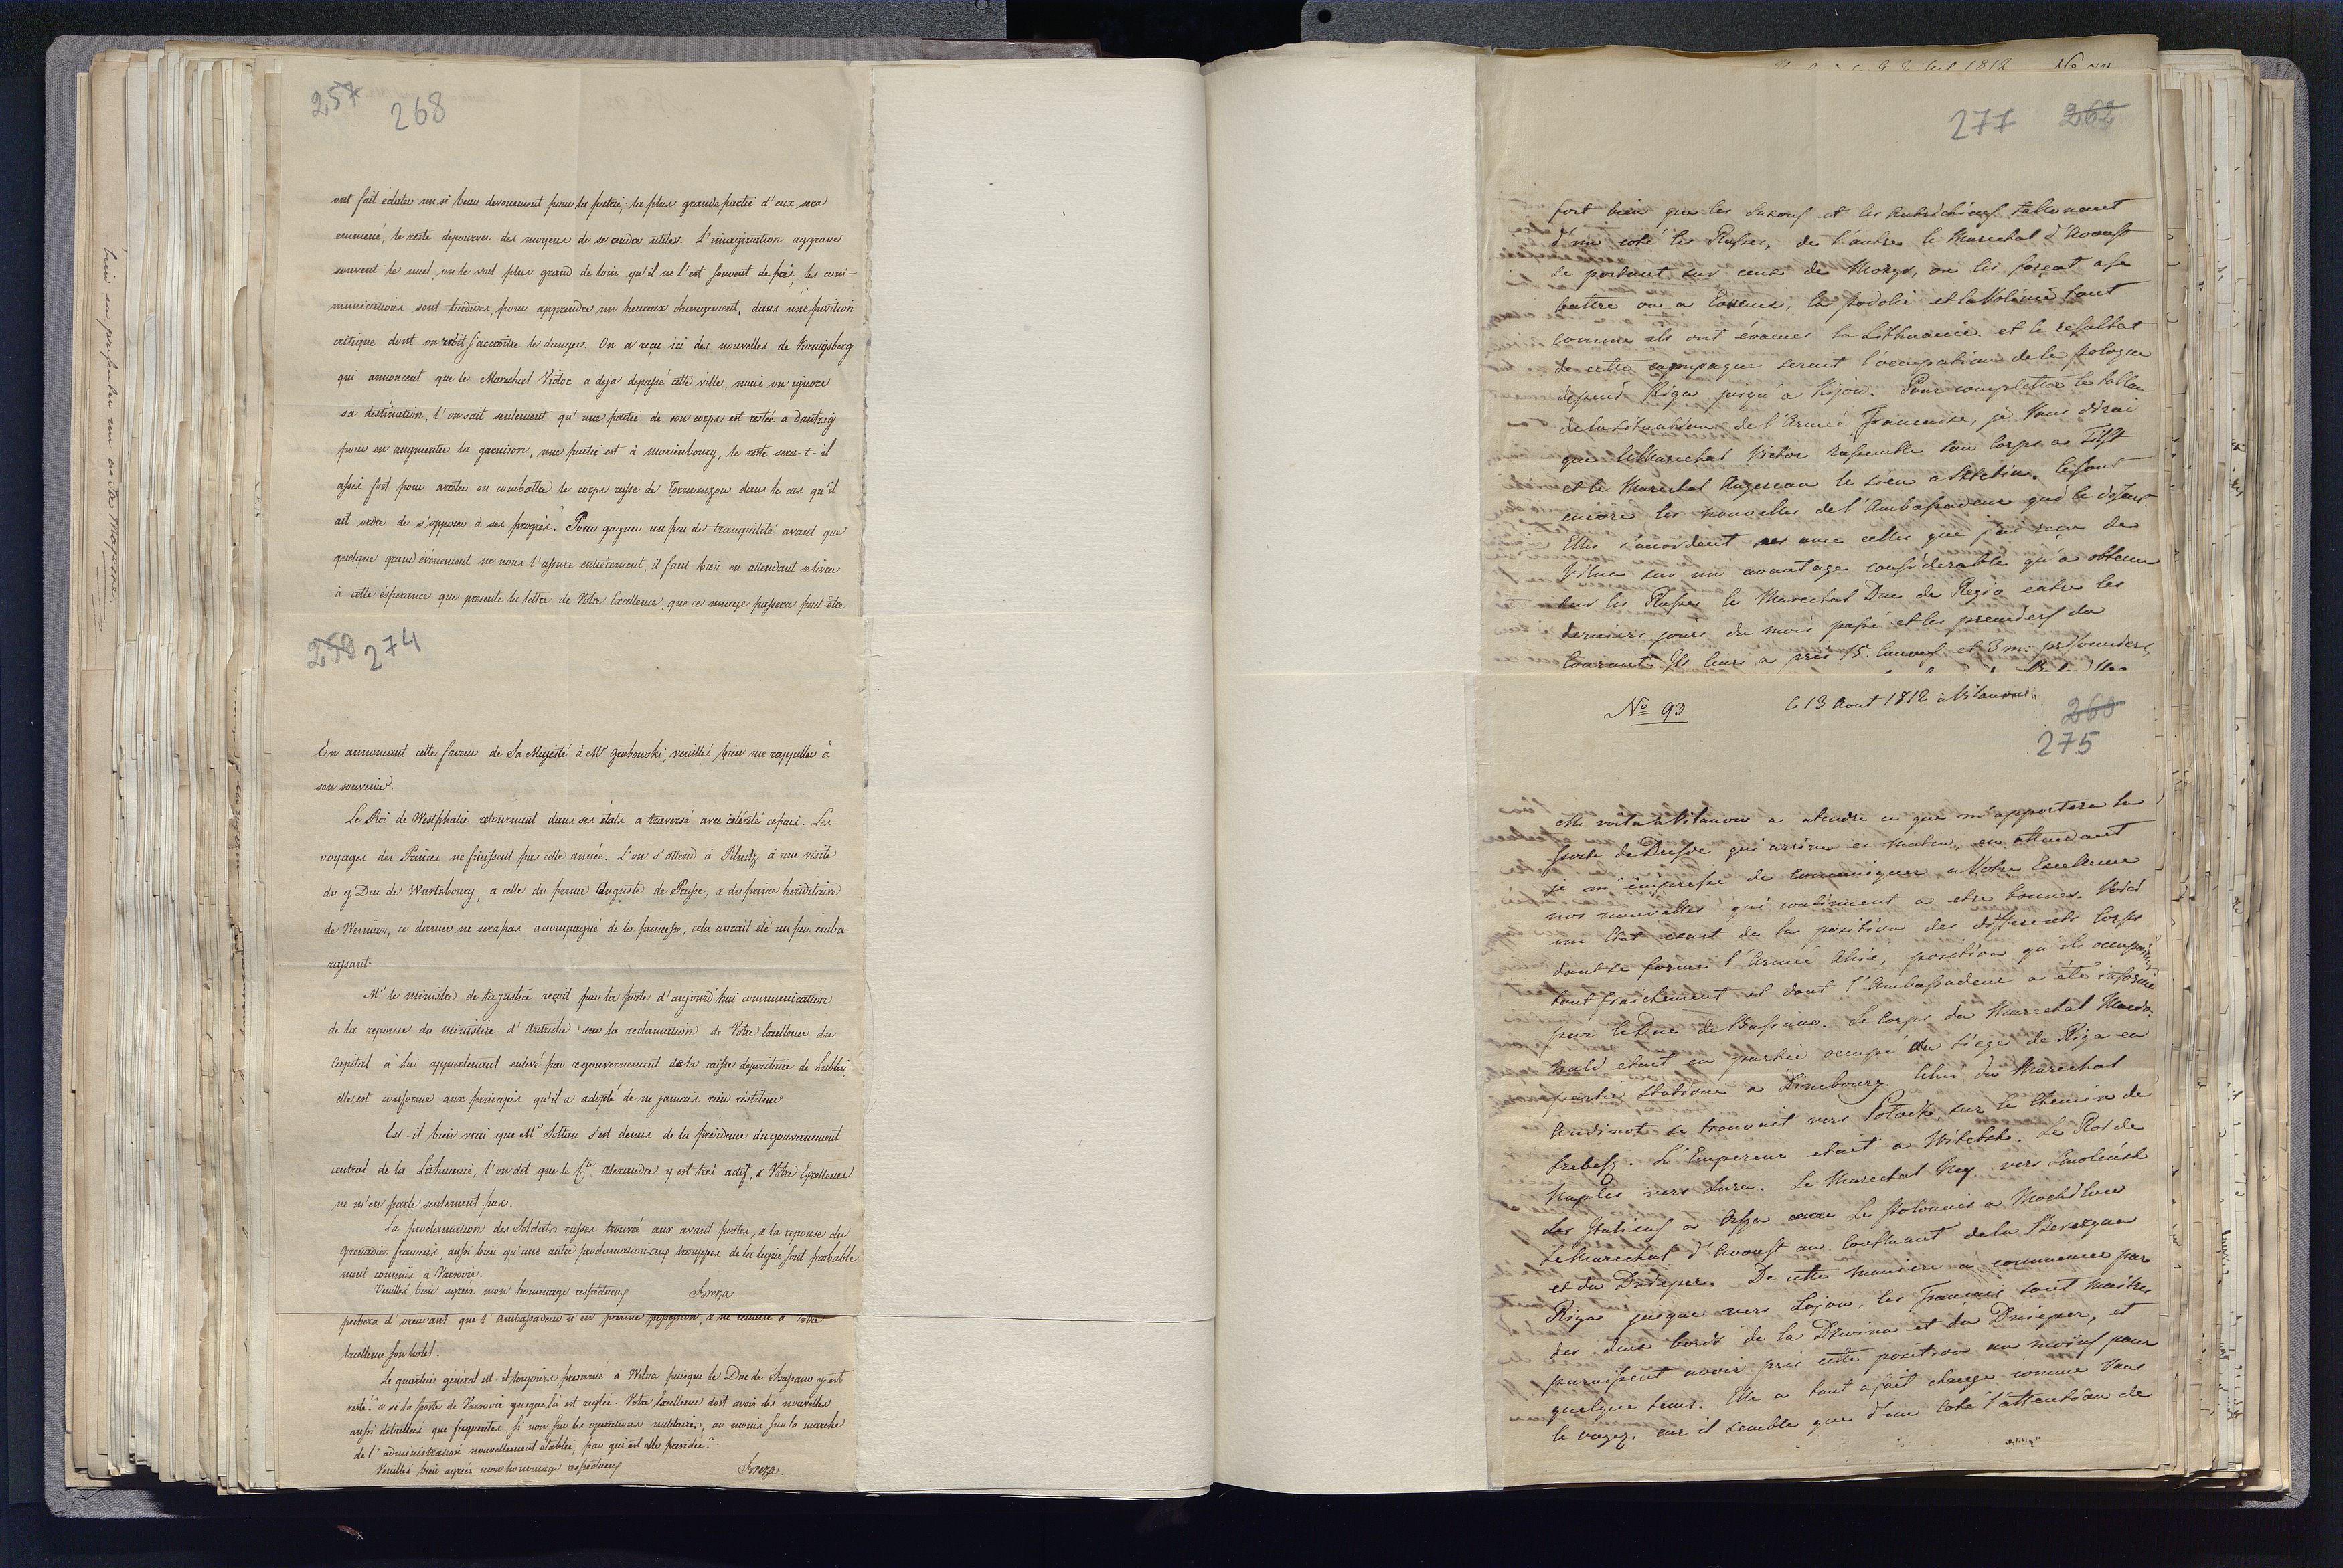 257 268
ont fait éclater un si beau devouement pour la patrie, la plus grande partie d'eux sera
emmené, le reste depourvu des moyens de se rendre utiles. L'imagination aggrave
souvent le mal, on le voit plus grand de loin qu'il ne l'est souvent de près, les com-
munications sont tardives, pour apprendre un heureux changement, dans une position
critique dont on croit s'accroitre le danger. On a reçu ici des nouvelles de Koenigsberg
qui annoncent que le Marechal Victor a deja depassé cette ville, mais on ignore
sa destination, l'on sait seulement qu'une partie de son corps est restée a Dantzig
pour en augmenter la garnison, une partie est à Marienbourg, le reste sera-t-il
assés fort pour arreter ou combattre le corps russe de Tormanzow dans le cas qu'il
ait ordre de s'opposer à ses progrès? Pour gagner un peu de tranquilité avant que
quelque grand évenement ne nous l'assure entièrement, il faut bien en attendant se livrer
à cette ésperance que presente la lettre de Votre Excellence, que ce nuage passera peut-être
259 274
En annonçant cette faveur de Sa Majesté à Mr Grabowski, veuillés bien me rappeller à
son souvenir.
Le Roi de Westphalie retournant dans ses états a traversé avec célérité ce pais. Les
voyages des Princes ne finissent pas cette année. L'on s'attend à Pilnitz à une visite
du g Duc de Wurtzbourg, a celle du prince Auguste de Prusse, & du prince hereditaire
de Weimar, ce dernier ne sera pas acompagné de la princesse, cela aurait été un peu emba-
rassant.
Mr le ministre de la justice reçoit par la poste d'aujourd'hui communication
de la reponse du ministère d'Autriche sur la reclamation de Votre Excellence du
Capital à Lui appartenant enlevé par ce gouvernement de la caisse depositaire de Lublin,
elle est conforme aux principes qu'il a adopté de ne jamais rien réstituer
Est-il bien vrai que Mr Soltan s'est demis de la présidence du gouvernement
central de la Lithuanie, l'on dit que le Cte Alexandre y est très actif, & Votre Excellence
ne m'en parle seulement pas.
La proclamation des Soldats russes trouvée aux avant-postes, & la reponse du
Grenadier français aussi bien qu'une autre proclamation aux trouppes de la ligne sont probable
ment connues à Varsovie.
Veuillés bien agréer mon hommage respectueux Breza.
pechera d'orenavant que l'ambassadeur a en pleine possession, & ne remette à Votre
Excellence son hôtel.
Le quartier général est-il toujours presumé à Wilna puisque le Duc de Bassano y est
resté? & si la poste de Varsovie jusque là est reglée. Votre Excellence doit avoir des nouvelles
aussi détaillées que frequentes, si non sur les operations militaires, au moins sur la marche
de l'administration nouvellement établie, par qui est elle presidée?
Veuillés bien agréer mon hommage respectueux Breza.
277 262
fort bien que les Saxons et les Autrichiens tallonant
d'un coté les Russes, de l'autre le Marechal d'Avoust
se portant sur ceux de Mozyr, on les forçat a se
battre ou a evacuer la Podolie et la Volinie tout
comme ils ont évacué la Lithuanie et le resultat
de cette campagne serait l'occupation de la Pologne
depuis Riga jusqu'a Kijow. Pour completter le tableau
de la situation de l'Armée Francaise, je Vous dirai
que le Marechal Victor rassemble son Corps a Tilsit
et le Marechal Augereau le sien a Stetin. Ce sont
encore les nouvelles de l'Ambassadeur
Elles s'accordent avec celles que j'ai reçu de
Vilna sur un avantage considerable qu'a obtenu
sur les Russes le Marechal Duc de Regio entre les
derniers jours du mois passé et les premiers du
Courant. Il leurs a pris 15. Canons et 3 m: prisonniers
No 93 le 13 Aout 1812 à Vilanow.
260
275
Me voila a Vilanow a atendre ce que m'apportera la
poste de Dresde qui arrive ce matin, en attendant
je m'empresse de communiquer a Votre Excellence
nos nouvelles qui continuent a etre bonnes. Voici
un Etat exact de la position des differents Corps
dont se forme l'Armée Aliée, position qu'ils occupoient
tout fraichement et dont l'Ambassadeur a été informé
par le Duc de Bassano. Le Corps du Marechal Macdo-
nald etait en partie occupé du siege de Riga en
partie stationé a Dunebourg. Celui du Marechal
Oudinot se trouvait vers Potock sur le Chemin de
Szebesz. L'Empereur etait a Witebsk. Le Roi de
Naples vers Sura. Le Marechal Ney vers Smolensk
Les Italiens a Le Polonais a Mochilow
Le Marechal d'Avoust au Confluant de la Berezyna
et du Dnieper. De cette maniere a commencer par
Riga jusque vers Lojow, les Francais sont maitres
des deux bords de la Dzwina et du Dnieper, et
paraissent avoir pris cette position au moins pour
quelque tems. Elle a tout a fait changé comme Vous
le voyez, car il semble que d'un coté l'attention de